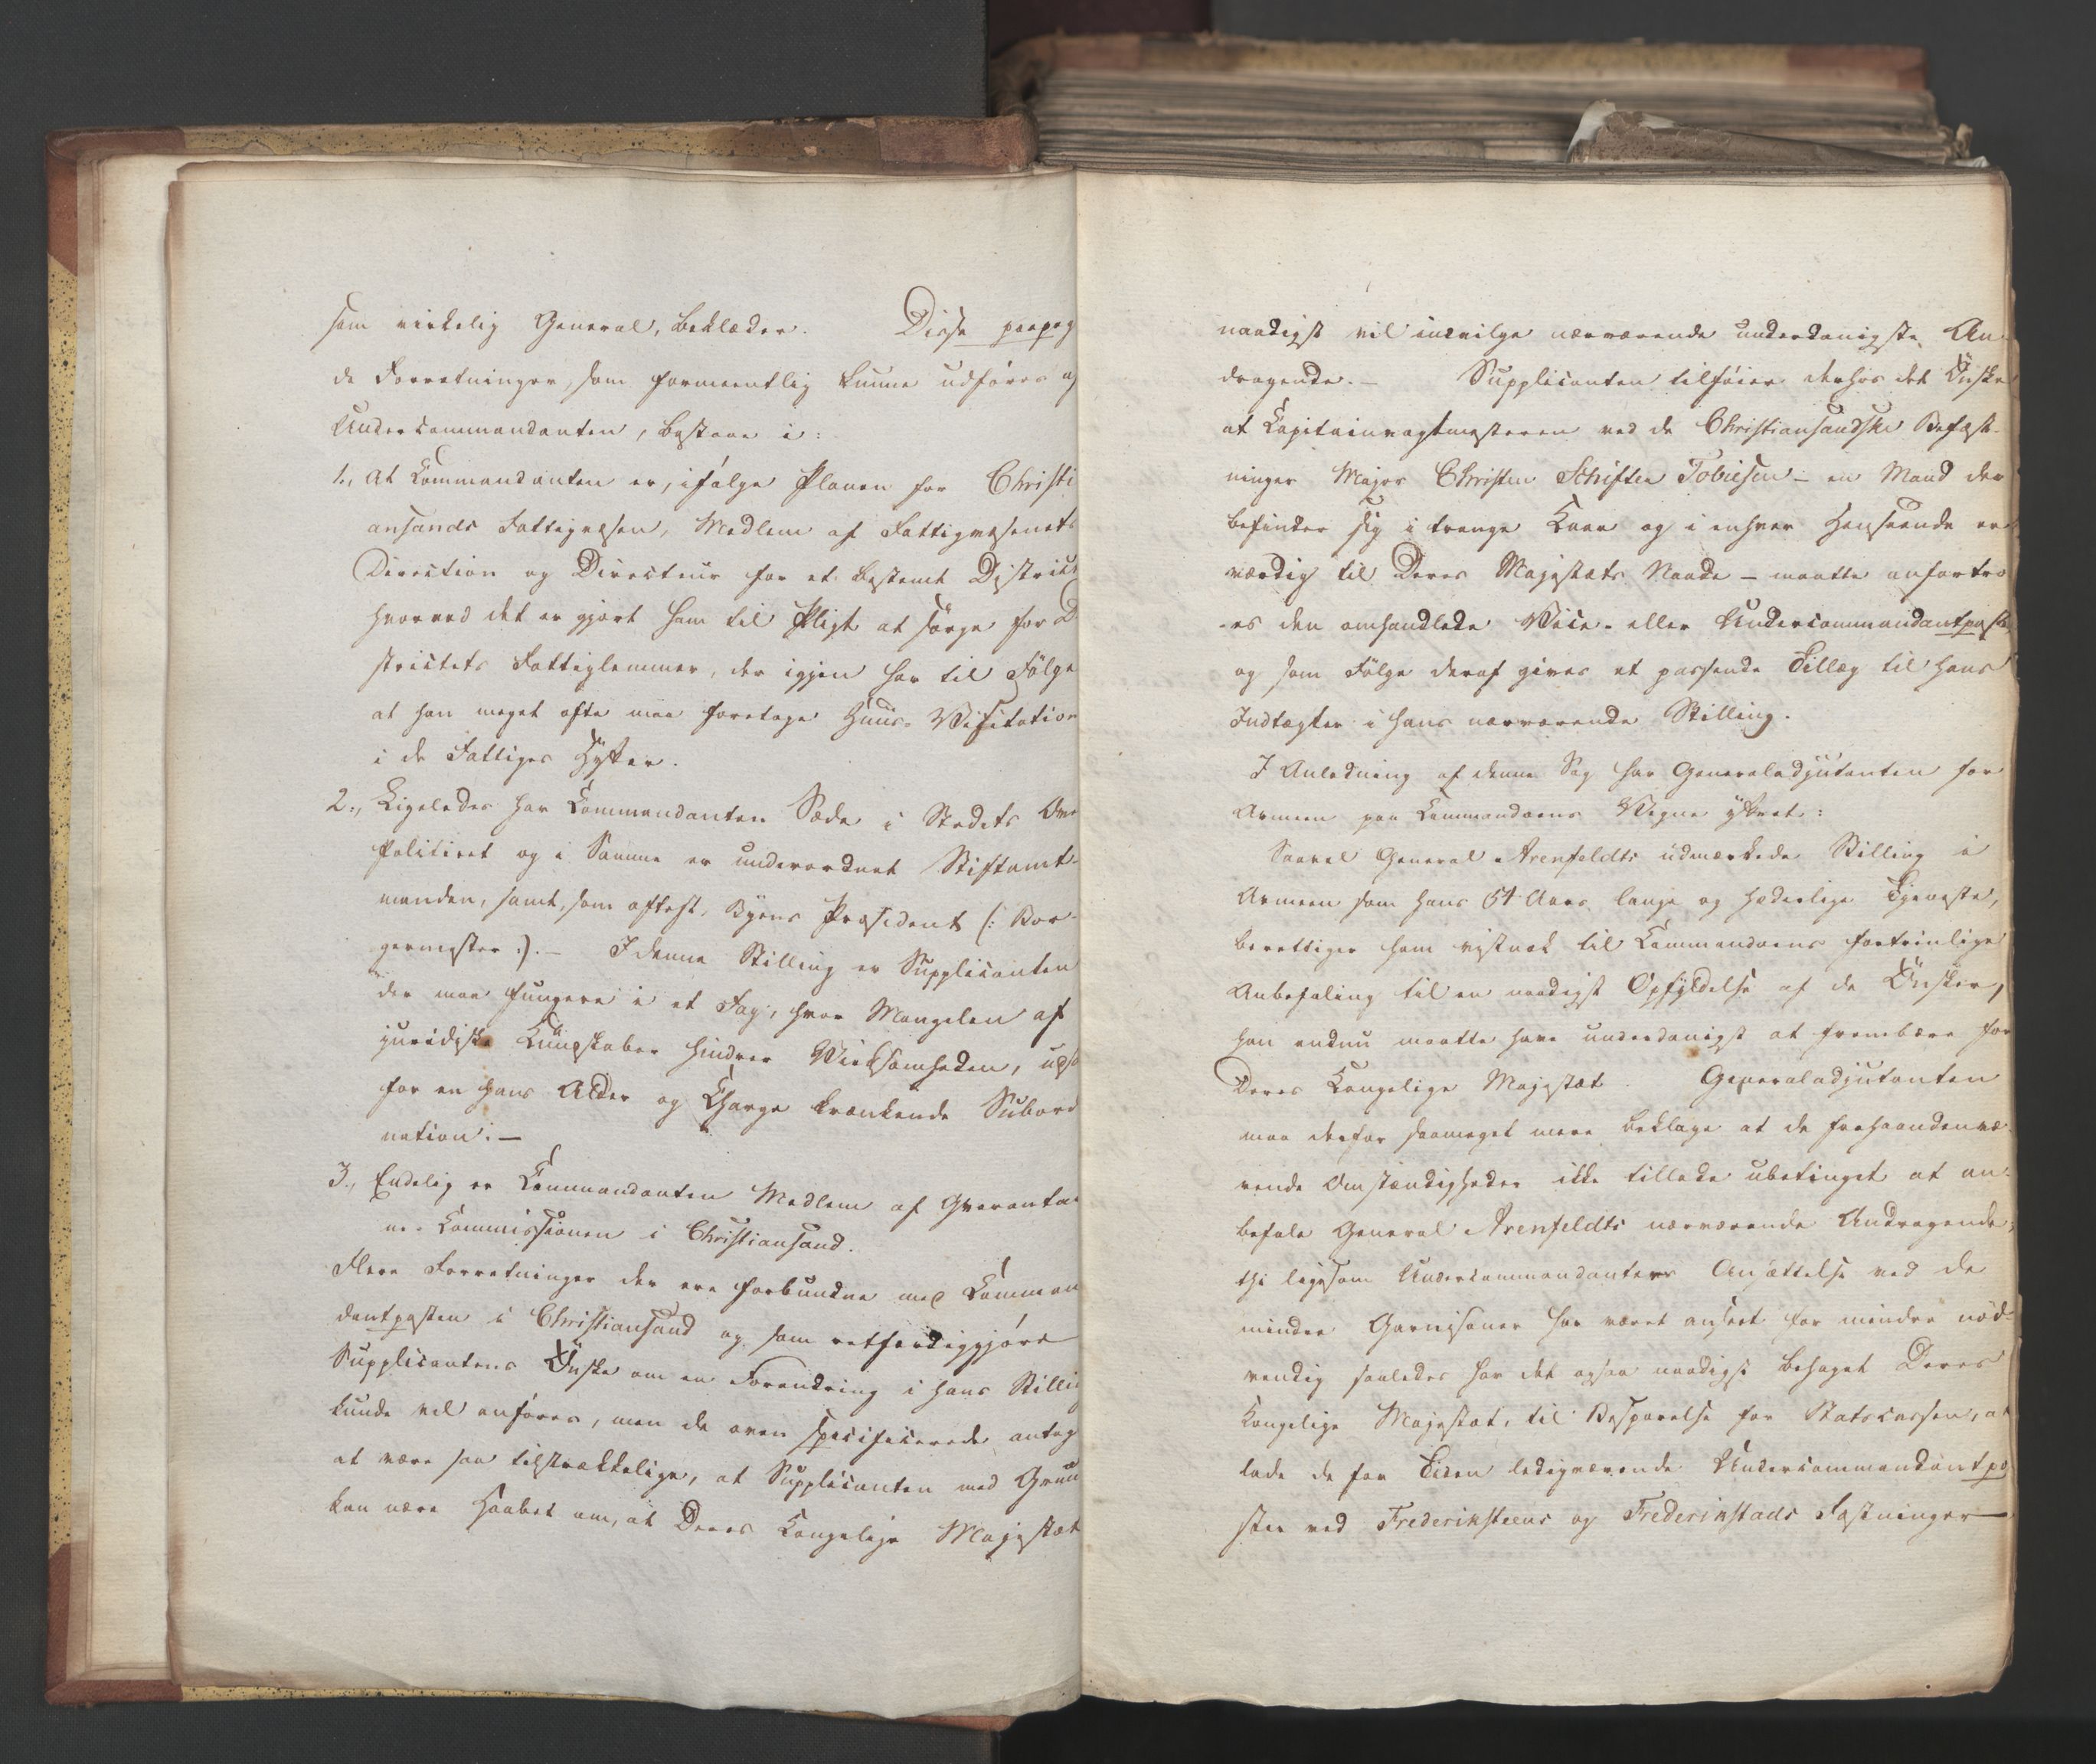 som virkelig General, beklæder. Disse paapeg
de Forretninger, som formeentlig kunne udføres af
Undercommandanten, bestaae i:
1., At Commandanten er, ifølge Planen for Christi
ansands Fattigvæsen, Medlem af Fattigvæsenets
Direction og Directeur for et bestemt District
hvorved det er gjort ham til Pligt at sørge for D
strictets Fattiglemmer, der igjen har til Følge
at han meget ofte maa foretage Huus-Visitation
i de Fattiges Hytter.
2., Ligeledes har Commandanten Sæde i Stedets Over
Politiret og i Samme er underordnet Stiftamt-
manden, samt, som oftest, Byens Præsident (: Bor-
germester :).- I denne Stilling er Supplicanten
der maa fungere i et Fag, hvor Mangelen af
juridiske Kundskaber hindrer Virksomheden, udsa
for en hans Alder og Charge krænkende Subord
nation.-
3., Endelig er Commandanten Medlem af Qvarantai
ne-Commissionen i Christiansand.
Flere Forretninger der ere forbundne med Comman
dantposten i Christiansand og som retfærdiggjøre
Supplicantens Ønske om en Forandring i hans Stilli
kunde vel anføres, men de oven specificerede antag
at være saa tilstrækkelige, at Supplicanten med Grun
kan nære Haabet om, at Deres Kongelige Majestæt
naadigst vil indvilge nærværende underdanigste An-
dragende.- Supplicanten tilføier derhos det Ønske
at Capitainvagtmesteren ved de Christiansandske Befæst-
ninger Major Christen Schifter Tobiesen - en Mand der
befinder sig i trange Kaar og i enhver Henseende er
værdig til Deres Majestæts Naade - maatte anfortro
-es den omhandlede Vice- eller Undercommandantpost,
og som Følge deraf gives et passende Tillæg til hans
Indtægter i hans nærværende Stilling.
I Anledning af denne Sag har Generaladjutanten for
Armeen paa Commandoens Vegne yttret:
Saavel General Arenfeldts udmærkede Stilling i
Armeen som hans 54 Aars lange og hæderlige Tjeneste,
berettiger ham vistnok til Commandoens fortrinlige
Anbefaling til en naadigst Opfyldelse af de Ønsker,
han endnu maatte have underdanigst at frembære for
Deres Kongelige Majestæt. Generaladjutanten
maa derfor saameget mere beklage at de forhaandenvæ-
rende Omstændigheder ikke tillade ubetinget at an-
befale General Arenfeldts nærværende Andragende;
thi ligesom Undercommandanters Ansættelse ved de
mindre Garnisoner har været anseet for mindre nød-
vendig saaledes har det ogsaa naadigst behaget Deres
Kongelige Majestæt, til Besparelse for Statscassen, at
lade de for Tiden ledigværende Undercommandantpo
ster ved Frederiksteens og Frederikstads Fæstninger